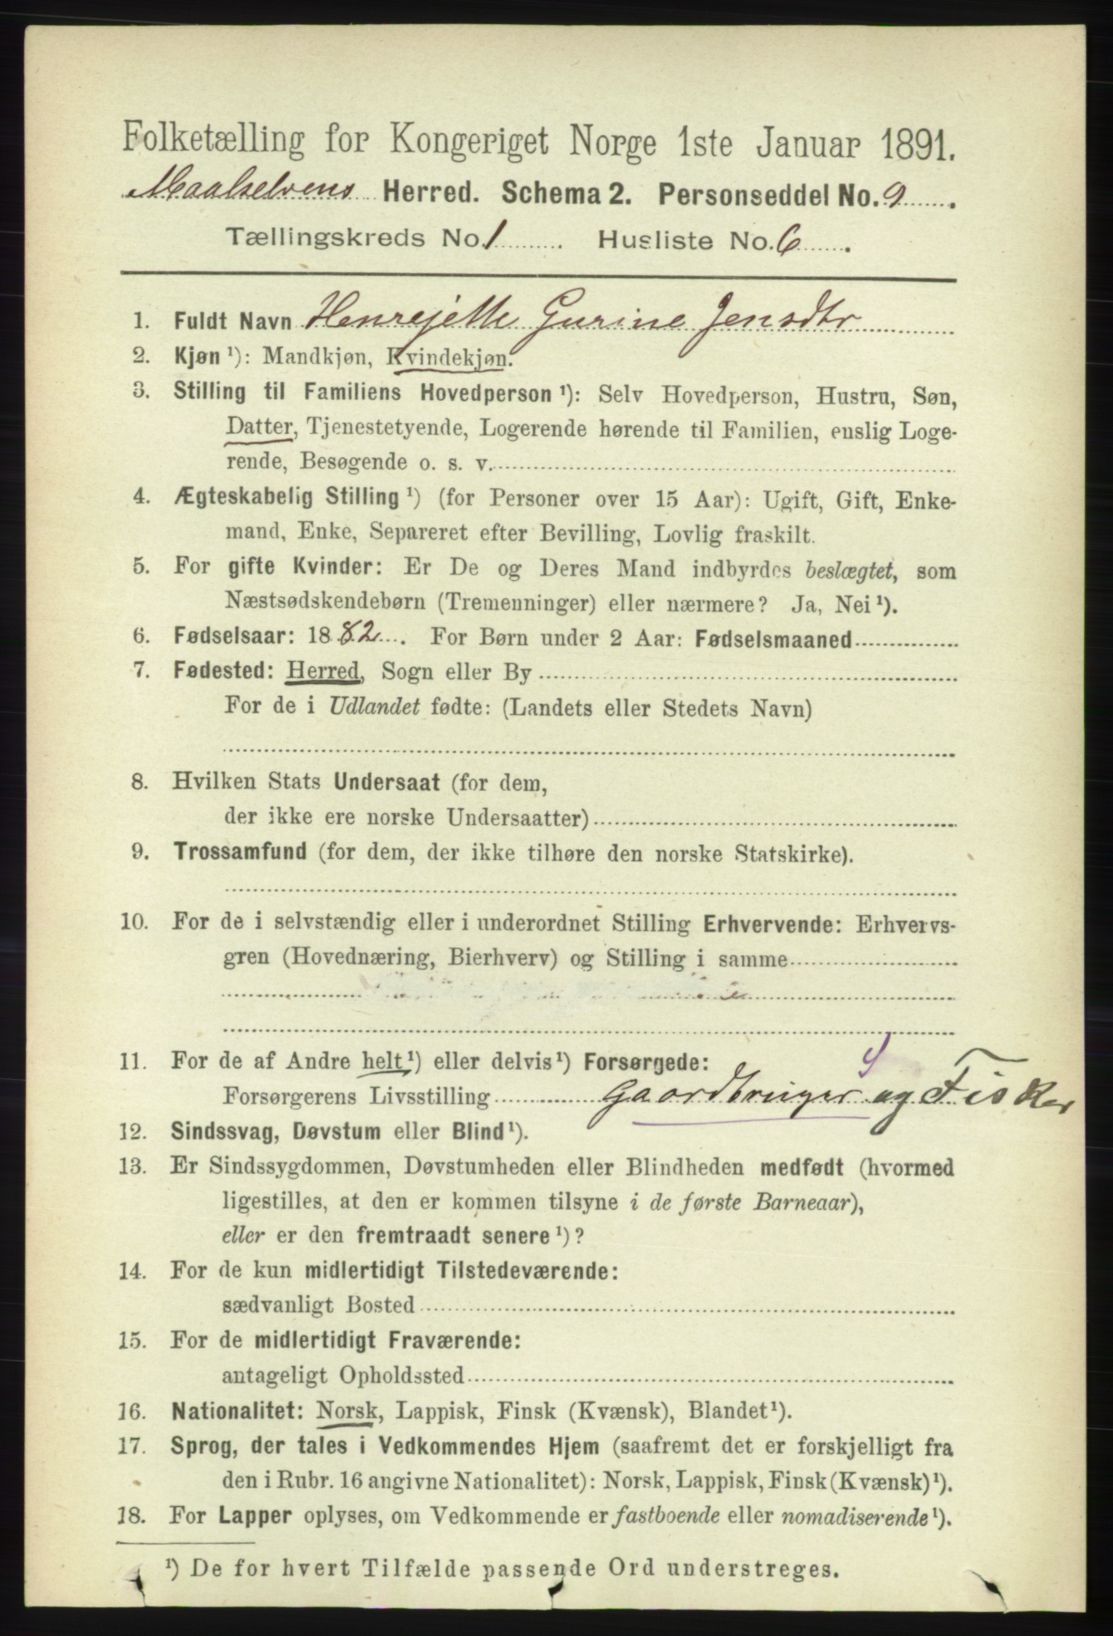 Folketælling for Kongeriget Norge 1ste Januar 1891.
Maalselvens Herred. Schema 2. Personseddel No. 9.
Tællingskreds No. 1. Husliste No. 6.
1. Fuldt Navn Henrejette Gurine Jensdtr
2. Kjøn ¹): Mandkjøn, Kvindekjøn.
3. Stilling til Familiens Hovedperson ¹): Selv Hovedperson, Hustru, Søn,
Datter, Tjenestetyende, Logerende hørende til Familien, enslig Loge-
rende, Besøgende o. s. v.
4. Ægteskabelig Stilling ¹) (for Personer over 15 Aar): Ugift, Gift, Enke-
mand, Enke, Separeret efter Bevilling, Lovlig fraskilt.
5. For gifte Kvinder: Er De og Deres Mand indbyrdes beslægtet, som
Næstsødskendebørn (Tremenninger) eller nærmere? Ja, Nei ¹).
6. Fødselsaar: 1882. For Børn under 2 Aar: Fødselsmaaned
7. Fødested: Herred, Sogn eller By
For de i Udlandet fødte: (Landets eller Stedets Navn)
8. Hvilken Stats Undersaat (for dem,
der ikke ere norske Undersaatter)
9. Trossamfund (for dem, der ikke tilhøre den norske Statskirke).
10. For de i selvstændig eller i underordnet Stilling Erhvervende: Erhvervs-
gren (Hovednæring, Bierhverv) og Stilling i samme
11. For de af Andre helt ¹) eller delvis ¹) Forsørgede:
Forsørgerens Livsstilling Gaardbruger og Fisker
12. Sindssvag, Døvstum eller Blind ¹).
13. Er Sindssygdommen, Døvstumheden eller Blindheden medfødt (hvormed
ligestilles, at den er kommen tilsyne i de første Barneaar),
eller er den fremtraadt senere ¹)?
14. For de kun midlertidigt Tilstedeværende:
sædvanligt Bosted
15. For de midlertidigt Fraværende:
antageligt Opholdssted
16. Nationalitet: Norsk, Lappisk, Finsk (Kvænsk), Blandet ¹).
17. Sprog, der tales i Vedkommendes Hjem (saafremt det er forskjelligt fra
den i Rubr. 16 angivne Nationalitet): Norsk, Lappisk, Finsk (Kvænsk) ¹).
18. For Lapper oplyses, om Vedkommende er fastboende eller nomadiserende ¹).
¹) De for hvert Tilfælde passende Ord understreges.